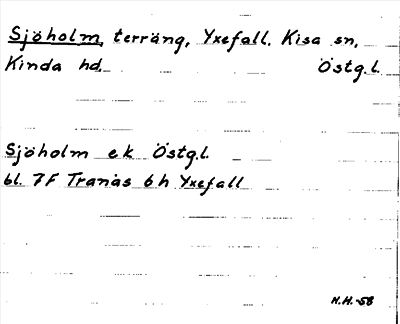 Sjöholm, terräng, Yxefall. Kisa sn,
Kinda hd. Östg.l.
Sjöholm ek Östg.l.
bl. 7F Tranås 6h Yxefall
N.H.-58